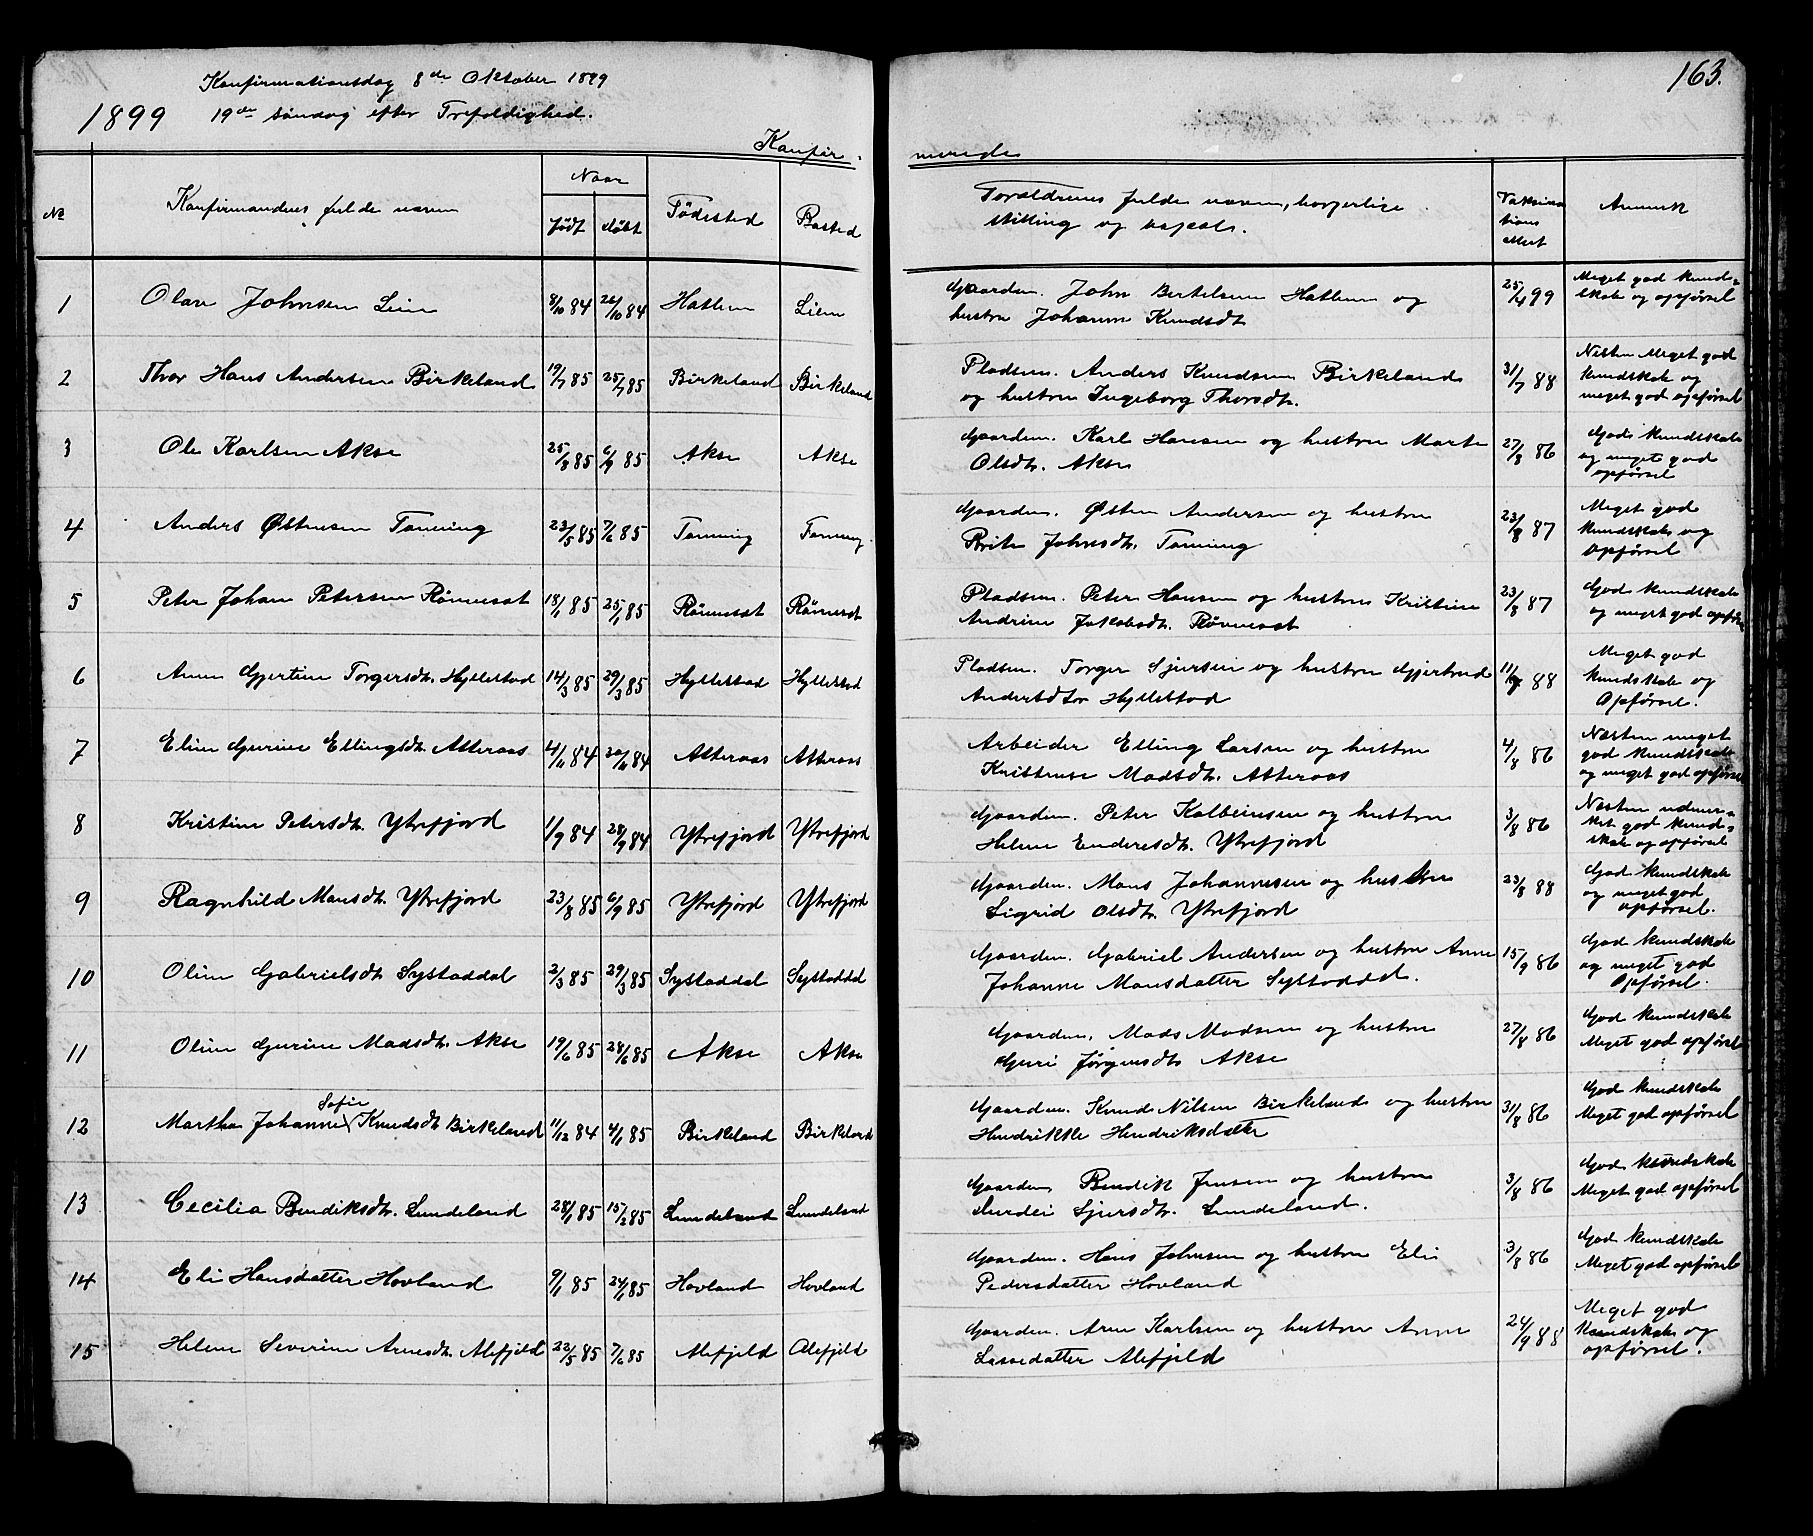 163.
Konfirmationsdag 8de Oktober 1899
1899 19de søndag efter Trefoldighed.
Konfir- merede
No
Konfirmandens fulde navn
Naar
født døbt
Fødested
Bosted
Forældrenes fulde navn, borgerlige
stilling og bopæl.
Vaksina
tions
Anmerk
1 Olav Johnsen Liem 8/10 84 26/10 84 Hatlem Liem
Gaardm. John Bertelsen Hatlem og
hustru Johanne Knudsdt
25/4 99
Meget god kund-
skab og opførsel
2 Thor Hans Andersen Birkeland 19/7 85 25/7 85 Birkeland Birkeland
Pladsm. Anders Knudsen Birkeland
og hustru Ingeborg Thorsdt.
31/7 88
Nesten Meget god
kundskab og
meget god opførsel
3 Ole Karlsen Akse 25/8 85 6/9 85 Akse Akse
Gaardm. Karl Hansen og hustru Marte
Olsdt. Akse
27/8 86
God kundskab
og meget god
opførsel
4 Anders Østensen Tonning 23/5 85 7/6 85 Tonning Tonning
Gaardm. Østen Andersen og hustru
Brite Johnsdt. Tonning
23/8 87
Meget god
kundskab og
opførsel
5 Peter Johan Petersen Rønneset 18/1 85 25/1 85 Rønneset Rønneset
Pladsm. Peter Hansen og hustru Kristine
Andrine Jakobsdt. Rønneset
23/8 87
God kundskab
og meget god opførsel
6 Anne Gjertine Torgersdt. Hyllestad 14/3 85 29/3 85 Hyllestad Hyllestad
Pladsm. Torger Sjursen og hustru Gjertrud
Andersdtr Hyllestad
11/7 88
Meget god
kundskab og
Opførsel.
7 Eline Gurine Ellingsdt. Atteraas 4/11 84 20/11 84 Atteraas Atteraas
Arbeider Elling Larsen og hustru
Kristense Madsdt. Atteraas
4/8 86
Næsten meget
god kundskab
og meget god opførsel
8 Kristine Petersdt. Ytrefjord 1/9 84 28/9 84 Ytrefjord Ytrefjord
Gaardm. Peter Kolbeinsen og hustru
Helene Endresdt. Ytrefjord
3/8 86
Næsten udmær-
ket god kund-
skab og opførsel
9 Ragnhild Monsdt. Ytrefjord 23/8 85 6/9 85 Ytrefjord Ytrefjord
Gaardm. Mons Johannesen og hustru
Sigrid Olsdt. Ytrefjord
23/8 88
God kundskab
og meget god
opførsel.
10 Oline Gabrielsdt. Systaddal 2/3 85 29/3 85 Systaddal Systaddal
Gaardm. Gabriel Andersen og hustru Anne
Johanne Monsdatter Systaddal.
15/9 86
God kundskab
og meget god
Opførsel.
11 Oline Gurine Madsdt. Akse 19/6 85 28/6 85 Akse Akse
Gaardm. Mads Madsen og hustru
Guri Jørgensdt. Akse
27/8 86
God kundskab
Meget god opførsel
12 Martha Johanne Sofie Knudsdt Birkeland 11/12 84 4/1 85 Birkeland Birkeland
Gaardm. Knud Nilsen Birkeland og hustru
Hendrikke Hendriksdatter
31/8 86
God kundskab
Meget god opførsel
13 Cecilia Bendiksdt. Lundeland 28/1 85 15/2 85 Lundeland Lundeland
Gaardm Bendik Jensen og hustru
Sjursdt. Lundeland.
3/8 86
God kundskab
Meget god opførsel
14 Eli Hansdatter Hovland 9/1 85 24/1 85 Hovland Hovland
Gaardm. Hans Johnsen og hustru Eli
Pedersdatter Hovland
3/8 86
God kundskab
Meget god opførsel
15 Helene Severine Arnesdt. Alefjeld 22/5 85 7/6 85 Alefjeld Alefjeld
Gaardm. Arne Karlsen og hustru Anne
Lassedatter Alefjeld
24/9 88
Meget god
Kundskab og
opførsel.